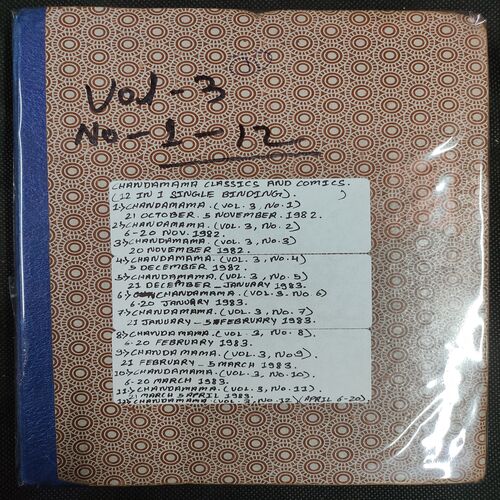 Vol-3
No-1-12
CHANDAMAMA CLASSICS AND COMICS.
(12 IN 1 SINGLE BINDING). )
1) CHANDAMAMA. (VOL. 3, NO. 1)
21 OCTOBER. 5 NOVEMBER. 1982.
2) CHANDAMAMA. (VOL. 3, NO. 2)
6-20 NOV. 1982.
3) CHANDAMAMA. (VOL. 3, NO. 3)
20 NOVEMBER 1982.
4) CHANDAMAMA. (VOL. 3, NO. 4)
5 DECEMBER 1982.
5) CHANDAMAMA. (VOL. 3, NO. 5)
21 DECEMBER - JANUARY 1983.
6) CHANDAMAMA. (VOL. 3. NO. 6)
6-20 JANUARY 1983.
7) CHANDAMAMA. (VOL. 3, NO. 7)
21 JANUARY - 5 FEBRUARY 1983.
8) CHANDAMAMA. (VOL. 3, NO. 8).
6-20 FEBRUARY 1983.
9) CHANDAMAMA. (VOL. 3, NO 9).
21 FEBRUARY - 5 MARCH 1983.
10) CHANDAMAMA. (VOL. 3, NO. 10).
6-20 MARCH 1983.
11) CHANDAMAMA. (VOL. 3, NO. 11).
21 MARCH 5 APRIL 1983.
12) CHANDAMAMA. (VOL. 3, NO. 12) (APRIL 6-20)